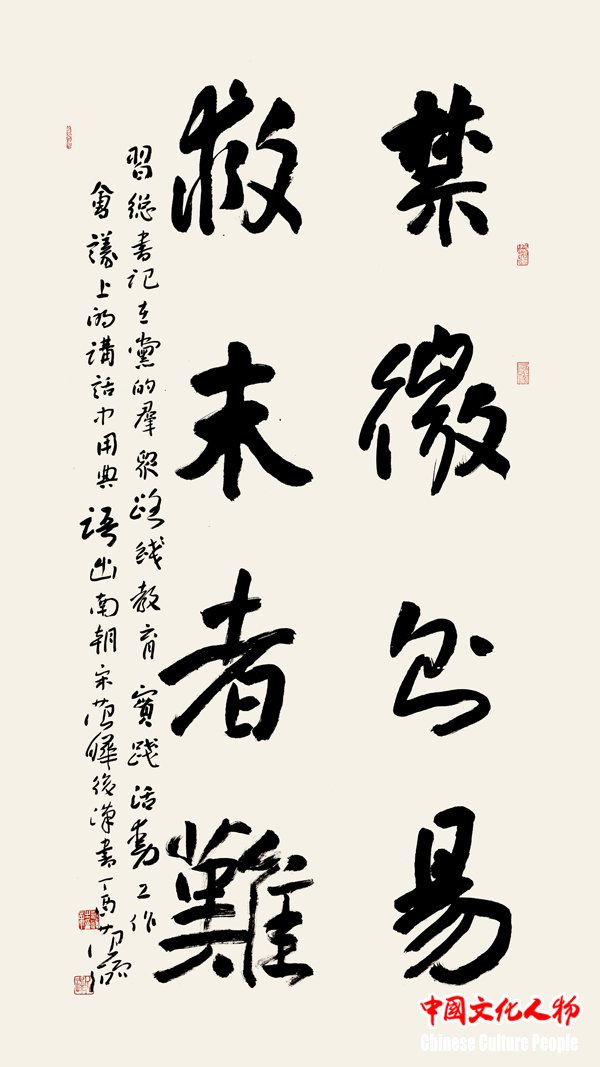 禁微則易
救末者難
習総書記在黨的羣眾路綫教育實踐活動工作
會議上的講話中用典語出南朝宋范曄後漢書丁酉
中國文化人物
Chinese Culture People